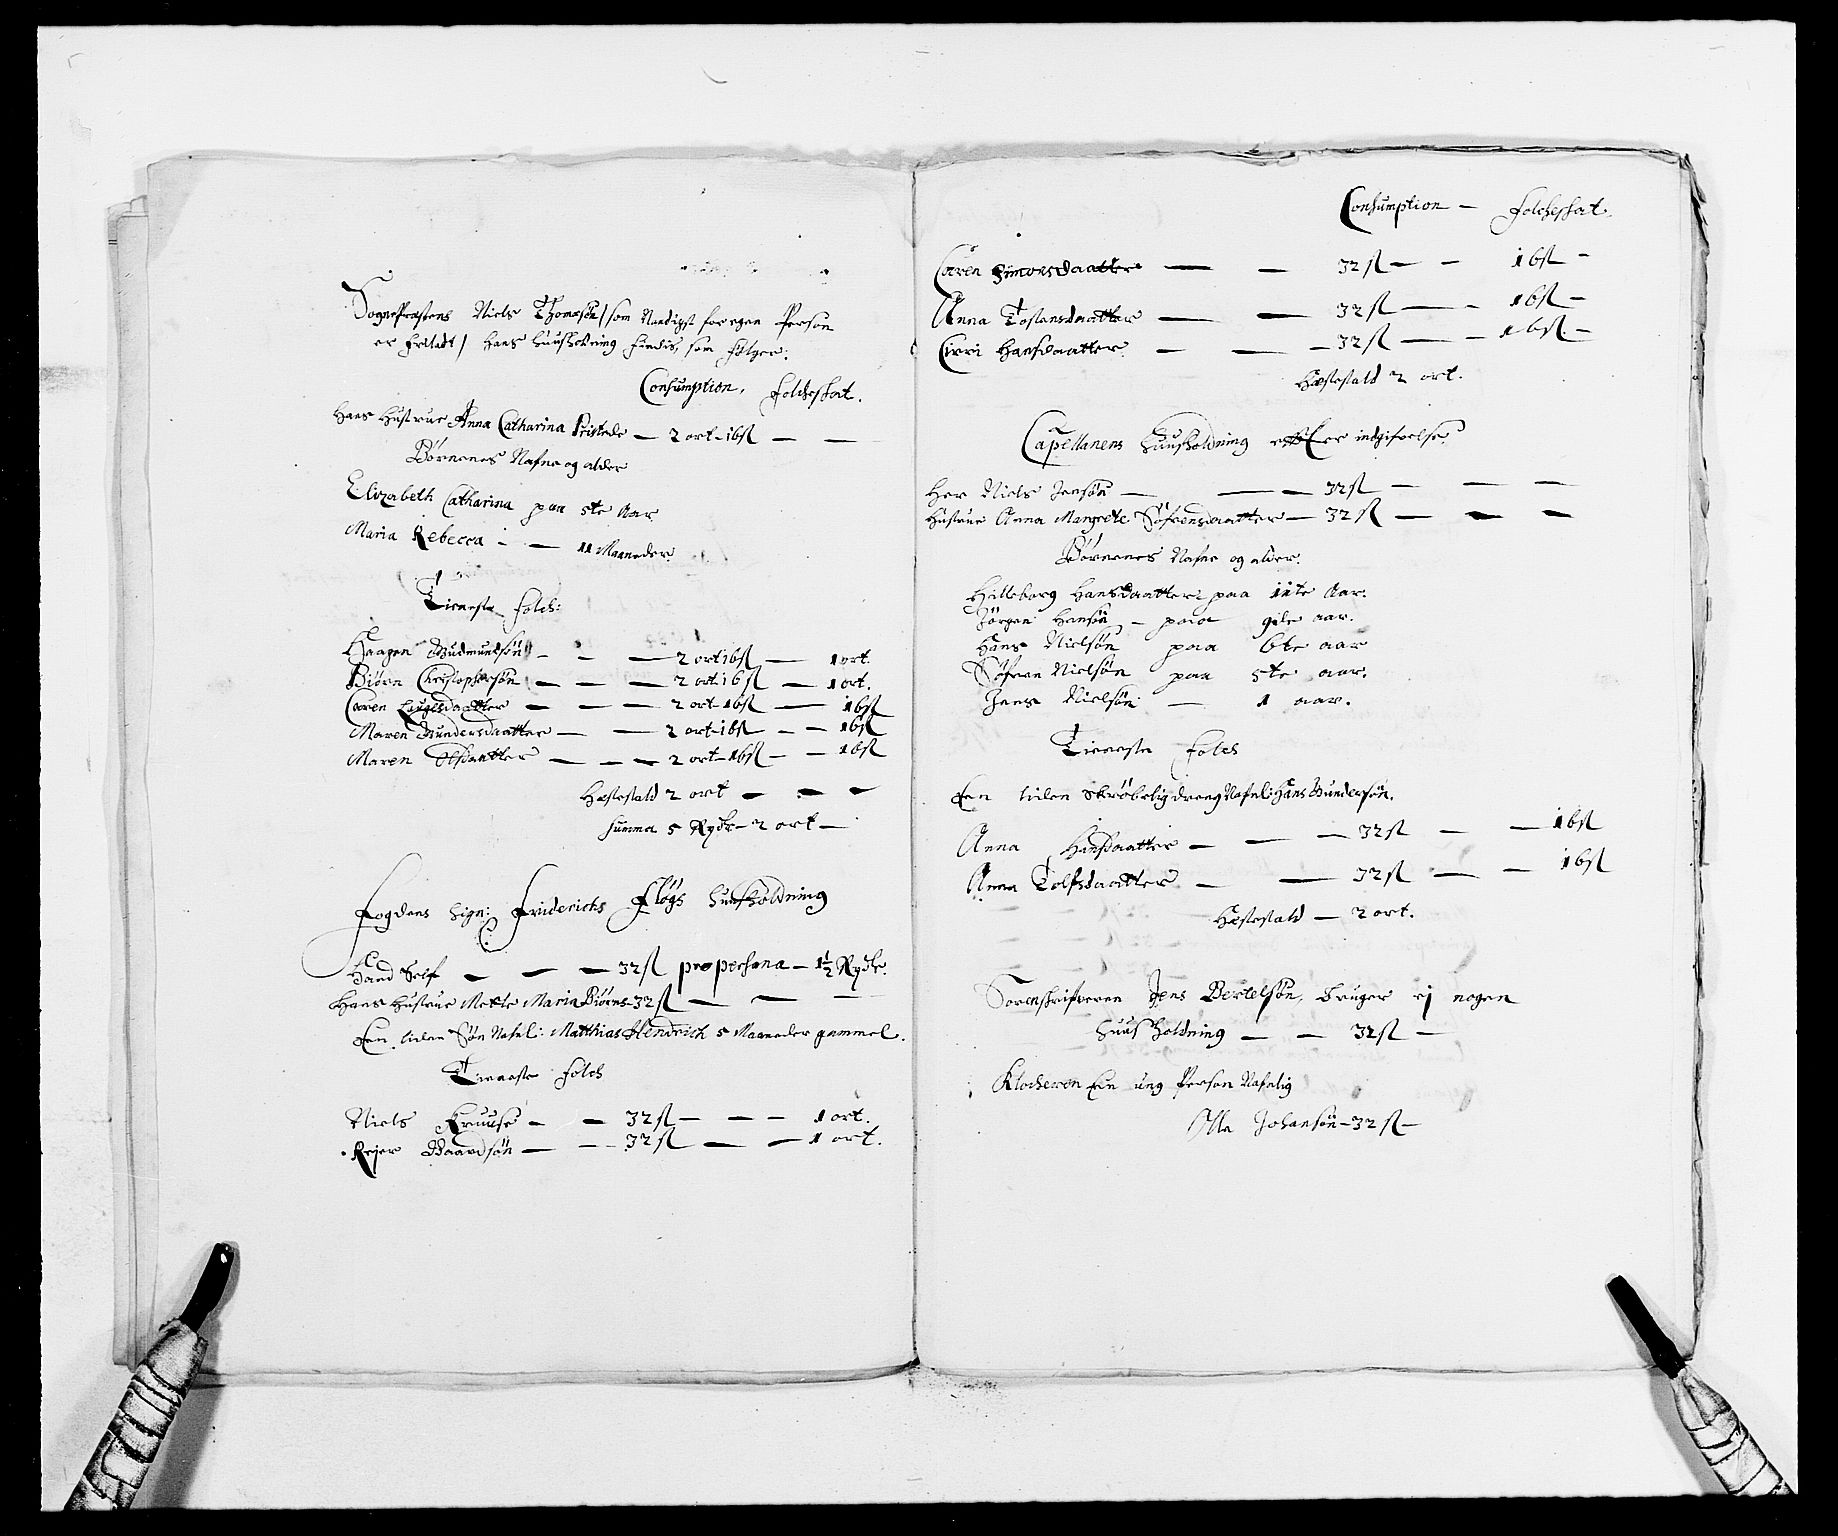 SognePræstens Niels Thomæsön / som Naadigst for egen Person
er forladt / hans huusholdning findis, som fölger.
Consumption, Folcheskat.
Hans Hustrue Anna Catharina Pristede — 2 ort - 16 sl — —
Börnenes Nafne og alder
Elizabeth Catharina paa 5te Aar
Maria Rebecca - — 11 Maaneder
Tieneste Folch:
Haagen Gudmundsön - - — 2 ort 16 sl — 1 ort.
Biörn Christophersön — — — 2 ort 16 sl — 1 ort.
Caren — — — 2 ort - 16 sl — 16 sl
Maren Gundersdaatter — — 2 ort - 16 sl - - 16 sl
Maren Olsdaatter — — — 2 ort - 16 sl — — 16 sl
Hæstestald 2 ort — — —
Summa 5 Rydr - 2 ort —
Fogdens Sign: Friderichs Flögs Huusholdning
Hand Self — — — 32 sl pro persona — 1½ Rydr.
Hans Hustrue Mette Maria Biörns - 32 sl — — —
Een liden Sön Nafnl: Matthias Hendrich 5 Maaneder gammel.
Tieneste Folch
Niels Kruuse - — 32 sl — - - 1 ort.
Rejer Baardsön — — 32 sl — — 1 ort.
Consumption — Folcheskat.
Caren Simonsdaatter — — 32 sl — - 16 sl -
Anna Tostensdaatter — — 32 sl — - 16 sl -
Cirri Hansdaatter — — - 32 sl — - 16 sl -
Hæstestald 2 ort.
Capellanens Huusholdning efter indgifvelse
Her Niels Jensön — — — 32 sl — — —
Hustrue Anna Margrete Söfrensdaatter — 32 sl — — —
Börnenes Nafne og alder.
Hilleborg Hansdaatter paa 11te Aar.
Jörgen Hansön - paa 9de aar.
Hans Nielsön paa 6te aar
Söfren Nielsön paa 5te aar.
Jens Nielsön — 1 aar.
Tieneste Folch
Een liden Skröbelig dreng Nafnl: Hans Gundersön.
Anna Hansdaatter — — — 32 sl — — 16 sl
Anna Tolfsdaatter — — 32 sl — — 16 sl
Hæstestald — 2 ort.
Sorenskrifveren Jens Bertelsön, bruger ej nogen
Huusholdning — — 32 sl —
Klocheren Een ung Person Nafnlig
Olle Johansön - 32 sl —